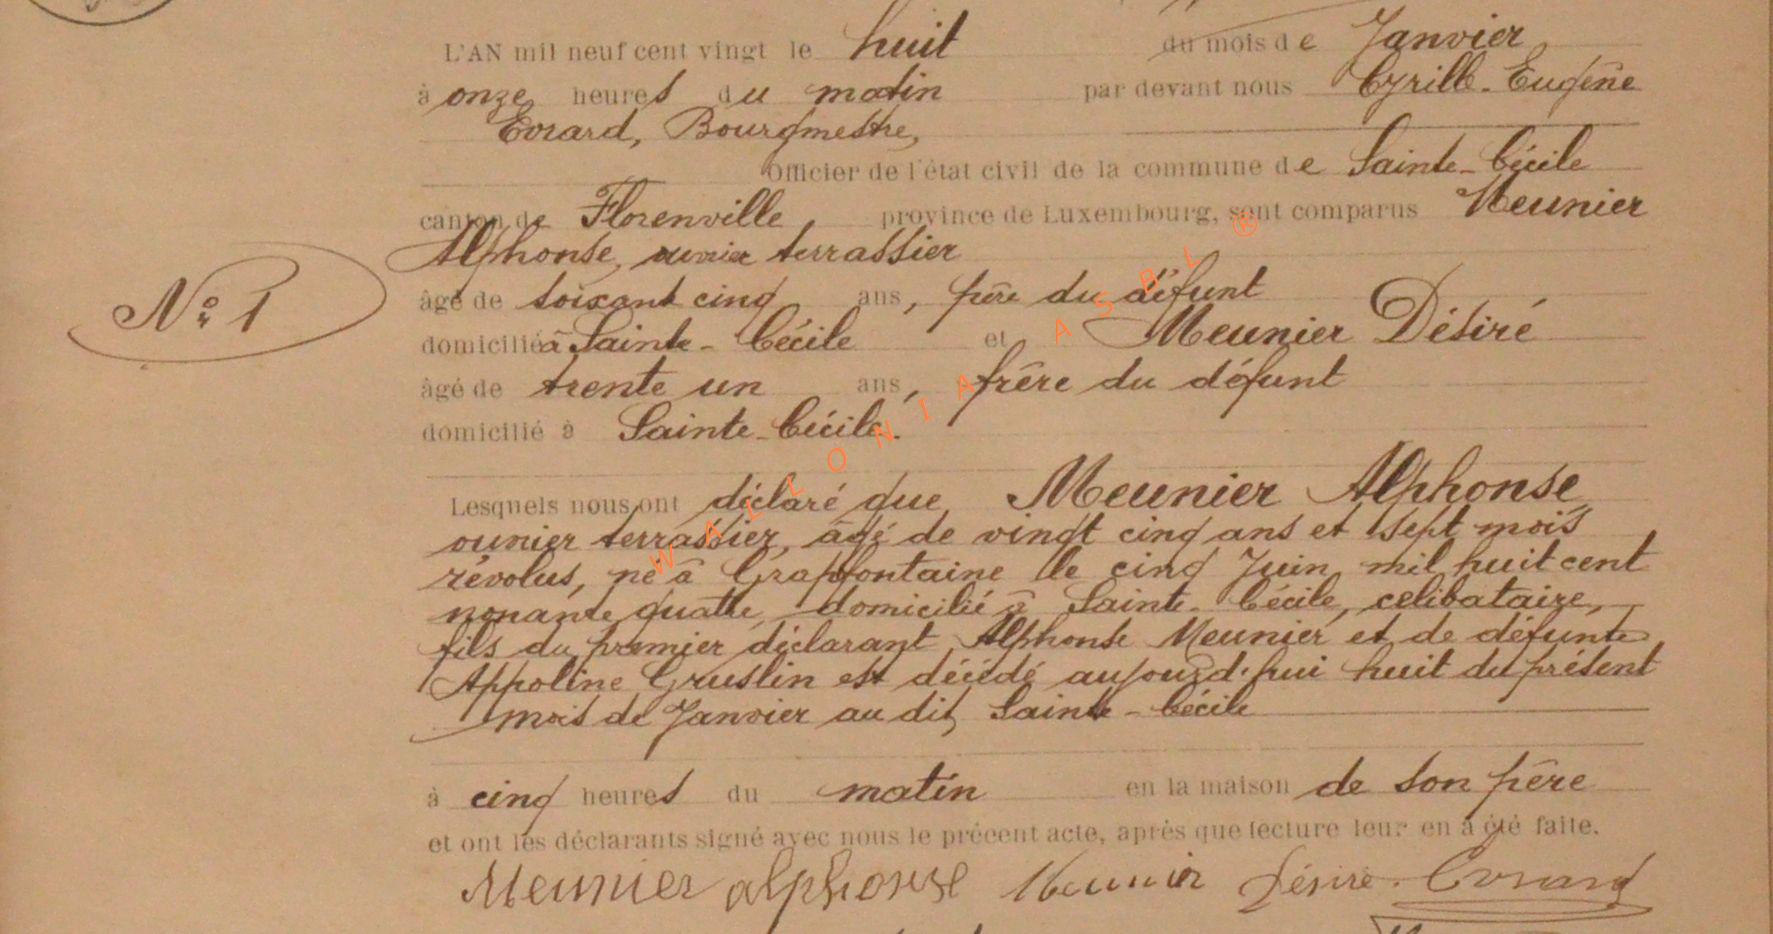 L'AN mil neuf cent vingt le huit du mois de Janvier
à onze heures du matin par devant nous Cyrille-Eugène
Evrard, Bourgmestre,
Officier de l'état civil de la commune de Sainte-Cécile
canton de Florenville, province de Luxembourg, sont comparus Meunier
Alphonse, ouvrier terrassier
Nº 1
âgé de soixant cinq ans, père du défunt
domicilié à Sainte-Cécile et Meunier Désiré
âgé de trente un ans, frère du défunt
domicilié à Sainte-Cécile.
Lesquels nous ont déclaré que Meunier Alphonse
ouvrier terrassier, âgé de vingt cinq ans et sept mois
révolus, né à Grapfontaine le cinq Juin mil huit cent
nonante quatre, domicilié à Sainte-Cécile, celibataire,
fils du premier déclarant Alphonse Meunier et de défunte
Appoline Gruslin est décédé aujourd'hui huit du présent
mois de Janvier au dit Sainte-Cécile
à cinq heures du matin en la maison de son père
et ont les déclarants signé avec nous le précent acte, après que lecture leur en a été faite.
Meunier alphonse Meunier Désiré. Evrard
WALLONIA ASBL ®